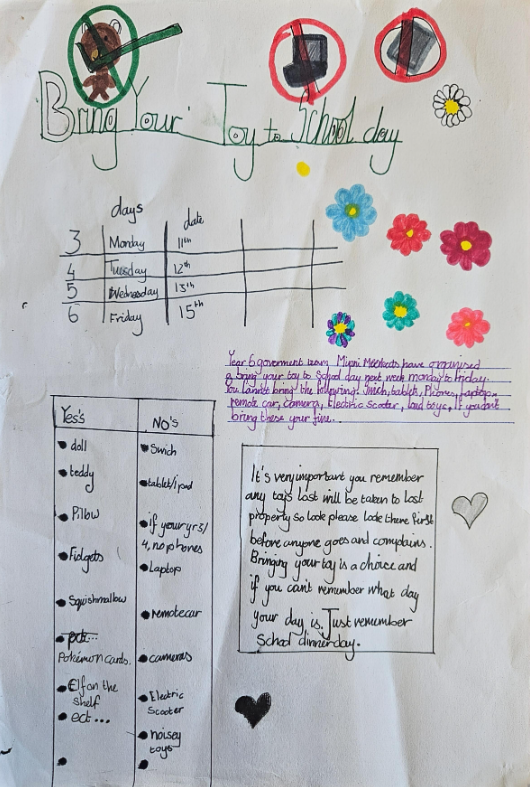 Bring Your Toy to School day
days date
3 Monday 11th
4 Tuesday 12th
5 Wednesday 13th
6 Friday 15th
Year 6 goverment team Miyani Meerkats have organised
a bring your toy to school day next week monday to friday.
You cannot bring the following: Swich, tablet, Phones, Laptop,
remote car, camera, Electric Scooter, loud toys, if you don't
bring these your fine..
Yes's
doll
teddy
Pillow
Fidgets
Squishmallow
ect...
Pokémon cards.
Elf on the
shelf
ect...
No's
Swich
tablet/ipad
if your yrs/
4, no phones
Laptop
remotecar
cameras
Electric
Scooter
noisey
toys
It's very important you remember
any toys lost will be taken to lost
property so look please look there first
before anyone goes and complains.
Bringing your toy is a choice and
if you can't remember what day
your day is, Just remember
School dinner day.